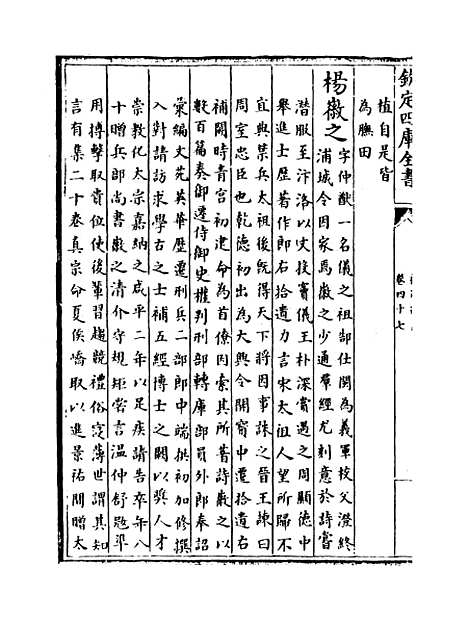 欽定四庫全書
卷四十七
植自是皆
為膴田
楊徽之字仲猷一名儀之祖郜仕閩為義軍校父澄終
浦城令因家焉徽之少通羣經尤刻意於詩嘗
潛服至汴洛以文投竇儀王朴深賞遇之周顯德中
舉進士歷著作郎右拾遺力言宋太祖人望所歸不
宜典禁兵太祖後旣得天下將因事誅之晉王諫曰
周室忠臣也乾德初出為天興令開寶中遷拾遺右
補闕時青宮初建命為首僚因索其所著詩徽之以
數百篇奏御遷侍御史權判刑部轉庫部員外郎奉詔
彙編文苑英華歷遷刑兵二部郎中端拱初加修撰
入對請訪求學古之士補五經博士之闕以奬人才
崇教化太宗嘉納之咸平二年以足疾請告卒年八
十贈兵郎尚書徽之清介守規矩嘗言溫仲舒冦準
用搏擊取貴位使後輩習趨競禮俗寖薄世謂其知
言有集二十卷真宗命夏侯嶠取以進景祐間贈太